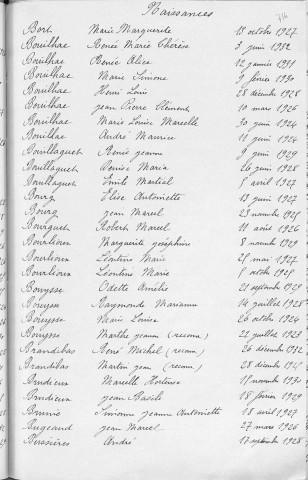 Naissances
Bort Marie Marguerite 18 octobre 1927
Bouilhac Renée Marie Thérèse 3 juin 1932
Bouilhac Renée Alice 12 janvier 1931
Bouilhac Marie Simone 9 février 1930
Bouilhac Henri Louis 28 décembre 1928
Bouilhac jean Pierre Clément 10 mars 1926
Bouilhac Marie Louise Marcelle 30 juin 1924
Bouilhac André Maurice 18 juin 1924
Bouillaguet René jeanne 9 juin 1929
Bouillaguet Denise Maria 26 juin 1928
Bouillaguet Emile Martial 5 avril 1927
Bourg Elise Antoinette 13 juin 1927
Bourg jean Marcel 23 novembre 1925
Bourguet Robert Marcel 11 août 1926
Bourlioux Marguerite joséphine 8 novembre 1929
Bourlioux Léontine Marie 25 mai 1927
Bourlioux Léontine Marie 5 octobre 1925
Bouysse Odette Amélie 21 septembre 1929
Bouysse Raymonde Marianne 14 juillet 1928
Bouysse Marie Louise 26 octobre 1924
Bouysse Marthe jeanne (reconn) 21 juillet 1923
Brandibas René Michel (reconn) 26 décembre 1932
Brandibas Marton jean (reconn) 28 décembre 1925
Brudieux Marcelle Hortense 15 novembre 1930
Brudieux jean Basile 18 février 1929
Brunie Simonne jeanne Antoinette 18 avril 1927
Bugeaud jean Marcel 27 mars 1926
Bessières André 17 septembre 1928